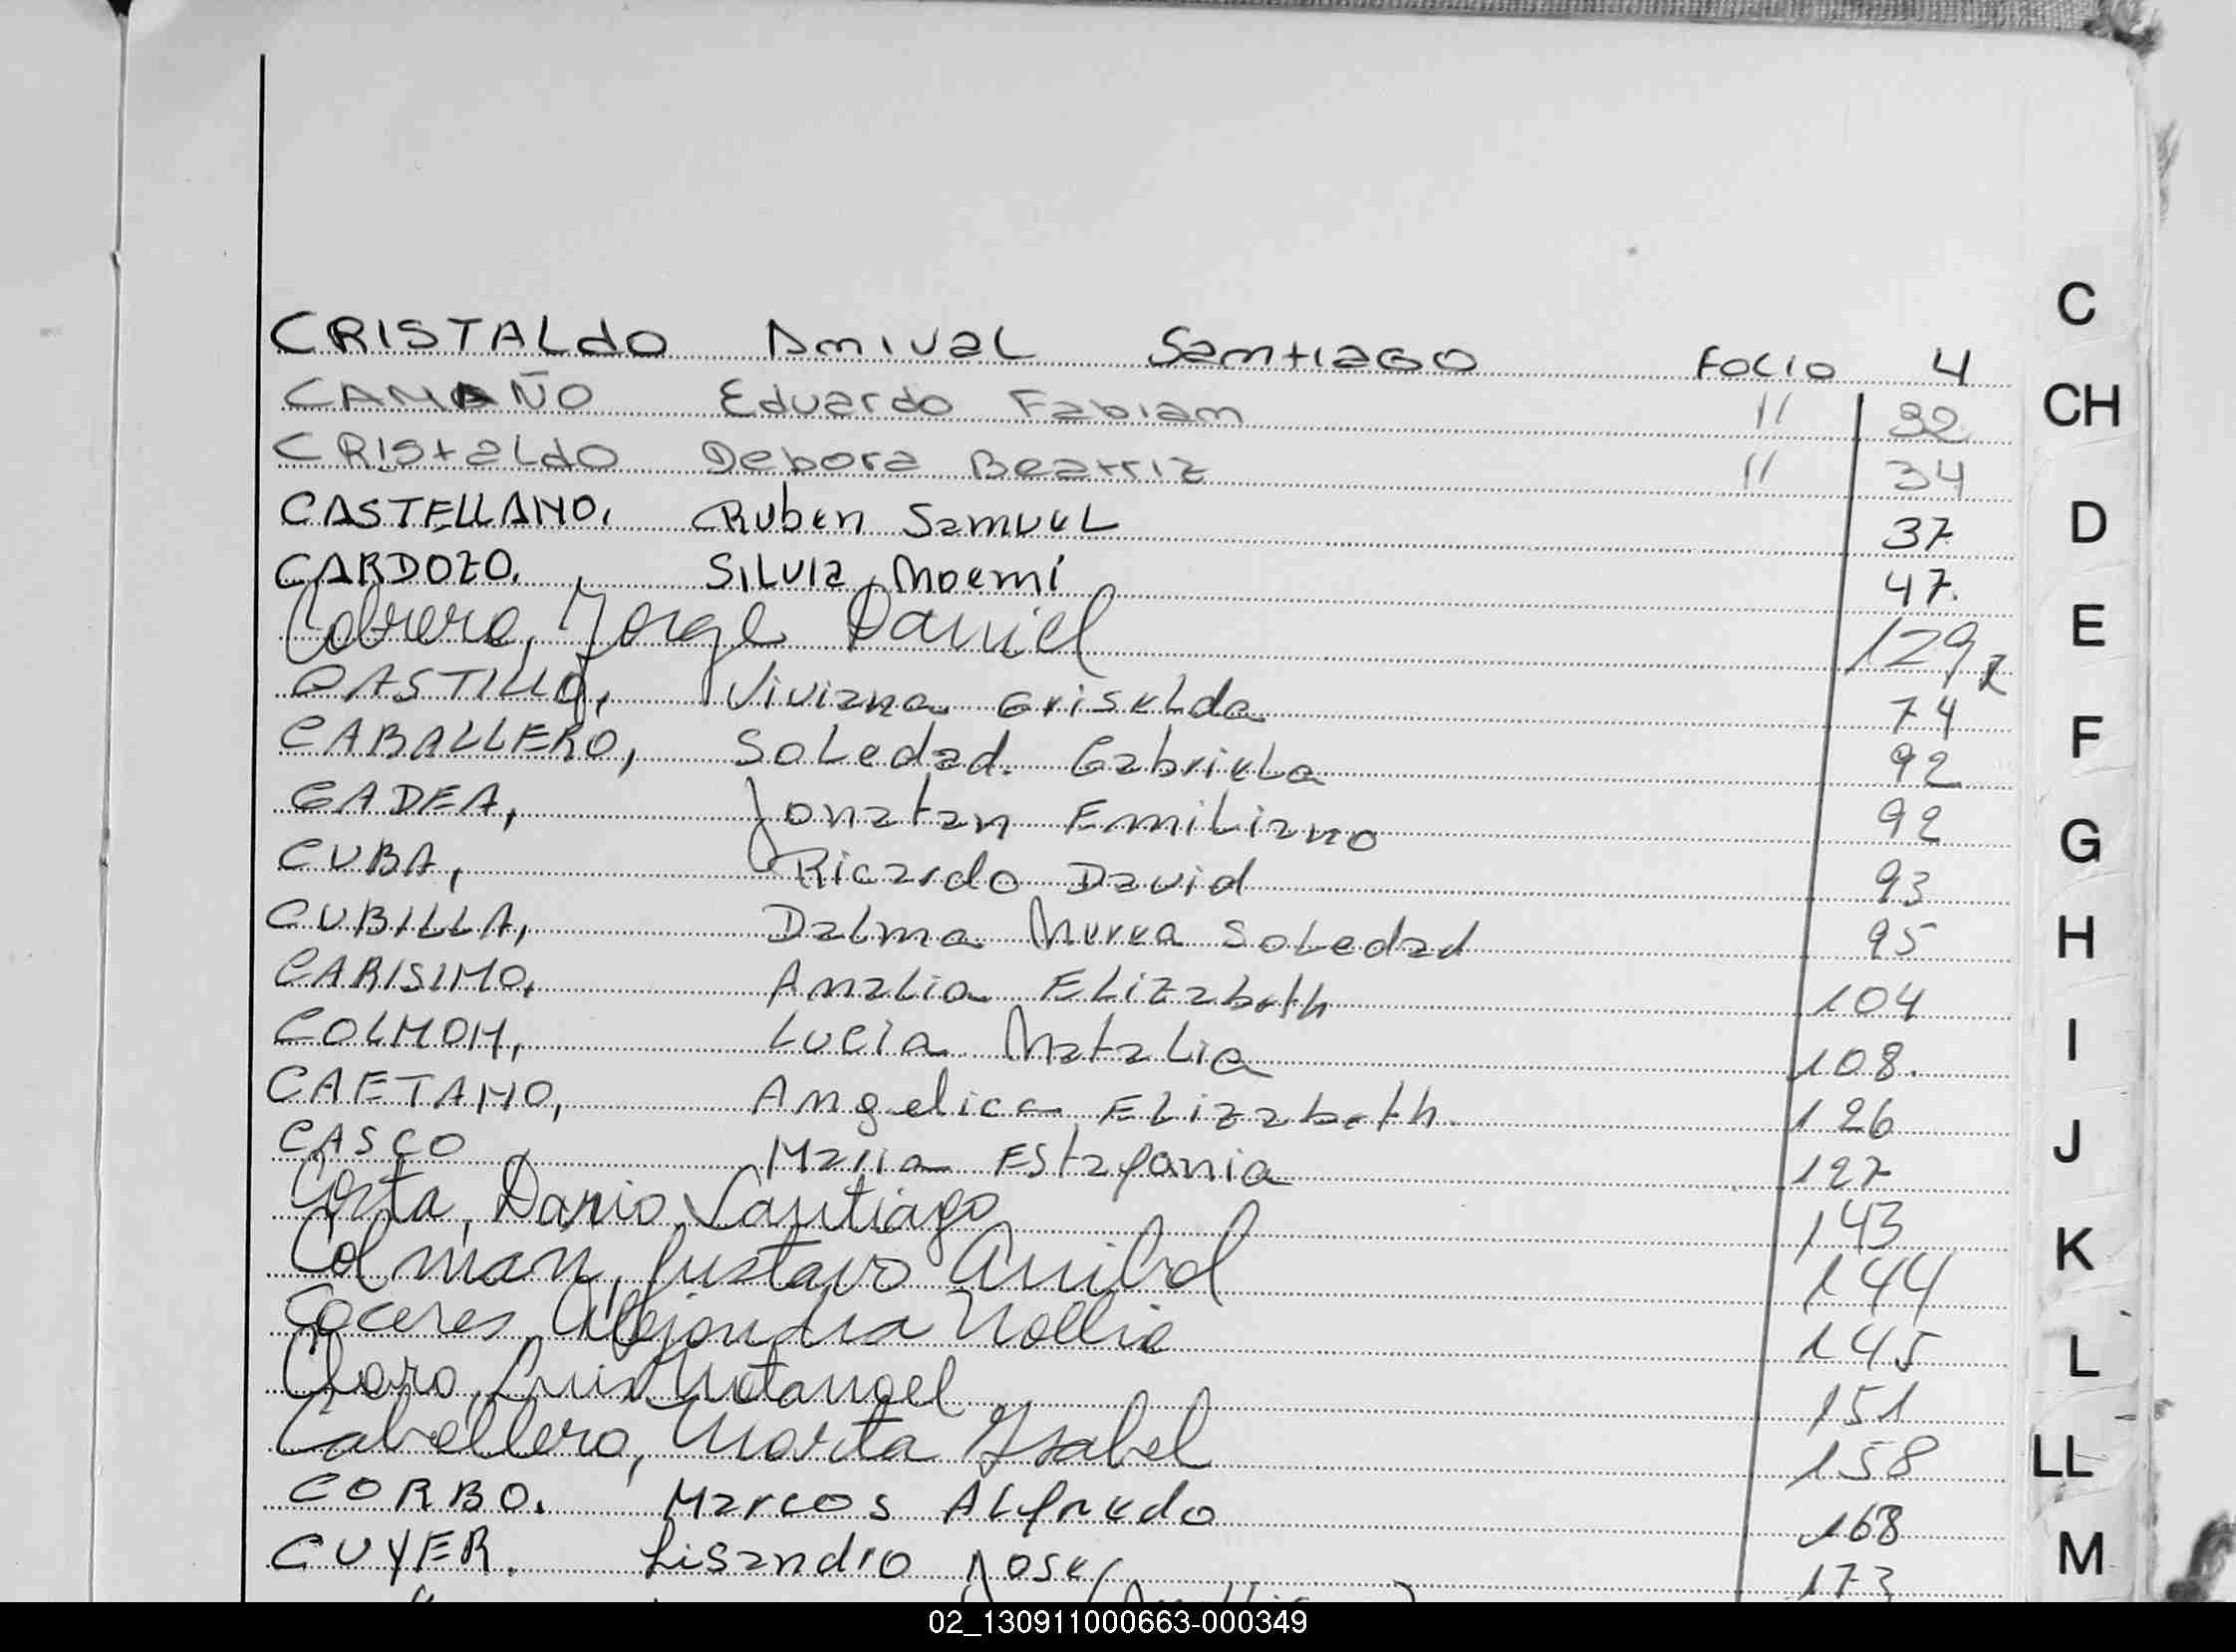 CRISTALdO Amival Santiago FOLIO 4
CAMAÑO Eduardo Fabiam " 32
CRIStaLdO Debora Beatriz " 34
CASTELLANO, Ruben SamueL 37
CARDOZO, SiLvia Noemi 47.
Cabrera, Jorge Daniel 129
CASTILLO, Viviana GriseLda 74
CABALLERO, SoLedad Gabriela 92
CADEA, Jonatan EmiLiano 92
CUBA, Ricardo David 93
CUBILLA, DaLma Soledad 95
CARISIMO, Analia ELizabeth 104
COLMON, Lucia Natalia 108.
CAETANO, Angelica ELizabeth. 126
CASCO, Maria Estefania 127
Costa, Dario Santiago 143
Colman, Gustavo Anibal 144
Caceres, Alejandra Noelia 145
Claro, Luis Natanael 151
Caballero, Marta Ysabel 158
CORBO. Marcos ALfredo 168
CUYER. Lisandro Jose 173
C
CH
D
E
F
G
H
I
J
K
L
LL
M
02_130911000663-000349